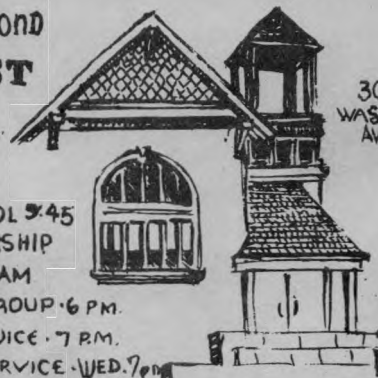 OND
ST
30
WAS
AV
OL 9:45
SHIP
AM
ROUP · 6 PM.
VICE · 7 P.M.
RVICE · WED. 7pm